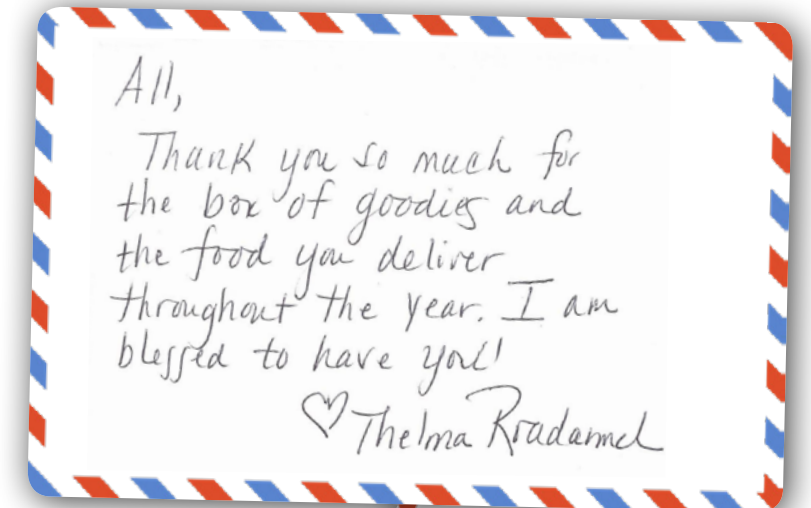 All,
Thank you so much for
the box of goodies and
the food you deliver
throughout the year. I am
blessed to have you!
Thelma